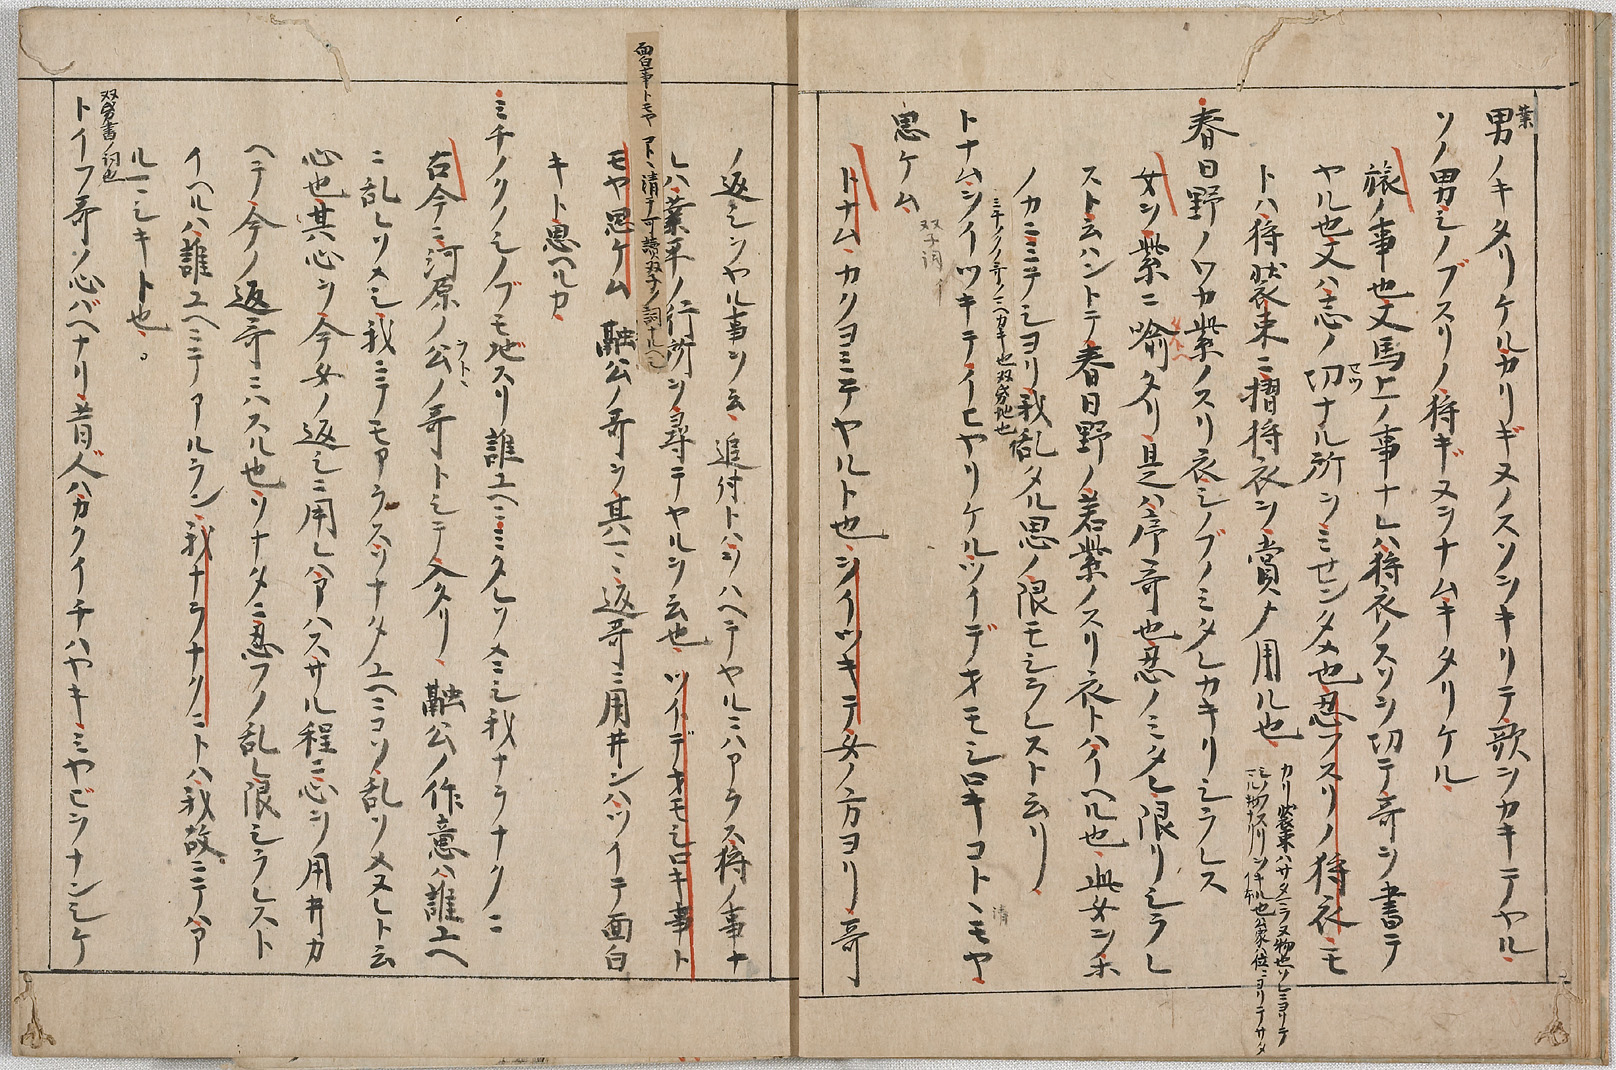 業
男ノキタリケルカリギヌノスソヲキリテ歌ヲカキテヤル
ソノ男シノブスリノ狩ギヌヲナムキタリケル
旅ノ事也又馬上ノ事ナレハ狩衣ノスソヲ切テ哥ヲ書テ
ヤル也又ハ志ノ切ナル所ヲミセンタメ也忍フスリノ狩衣モ
セツ
トハ狩装束ニ摺狩衣ヲ賞メ用ル也
カリ装束ハサタマラヌ物也ソレニヨリテ
シノフスリヲキル也公家ハ位ニヨリテサタ
春日野ノワカ紫ノスリ衣シノブノミタレカキリシラレス
女ヲ紫ニ喩タリ是ハ序哥也忍ノミタレ限リシラレ
ストハントテ春日野ノ若紫ノスリ衣トハイヘル也此女ヲホ
ノカニミテシヨリ我乱タル思ノ限モシラレスト云リ
ミチノクノ哥ノミヘカキ也双帋地也
トナムヲイツキテイヒヤリケルツイデオモシロキコトヽモヤ
清
思ケム
双子詞
トナムカクヨミテヤルト也ヲイツキテ女ノ方ヨリ哥
ノ返シヲヤル事ヲ云追付トハヲハヘテヤルニハアラス狩ノ事ナ
レハ業平ノ行所ヲ尋テヤルヲ云也ツイデオモシロキ事ト
面白事トモヤ アトヽ清テ可読双子ノ詞ナルヘシ
モヤ思ケム 融公ノ哥ヲ其マヽ返哥ニ用井ンハツイテ面白
キト思ヘルカ
ミチノクノシノブモヂスリ誰ユヘニミタレソメニシ我ナラナクニ
古今ニ河原ノ公ノ哥トシテ入タリ融公ノ作意ハ誰ユヘ
ニ乱レソメシ我ニテモアラスソナタユヘニコソ乱ソメヌレト云
心也其心ヲ今女ノ返シニ用レハアハスサル程ニ心ヲ用井カ
ヘテ今ノ返哥ニハスル也ソナタニ忍フノ乱レ限シラレスト
イヘルハ誰ユヘニテアルラン我ナラナクニトハ我故ニテハア
ルマシキト也
双帋書ノ詞也
トイフ哥ノ心バヘナリ昔人ハカクイチハヤキミヤビヲナンシケ